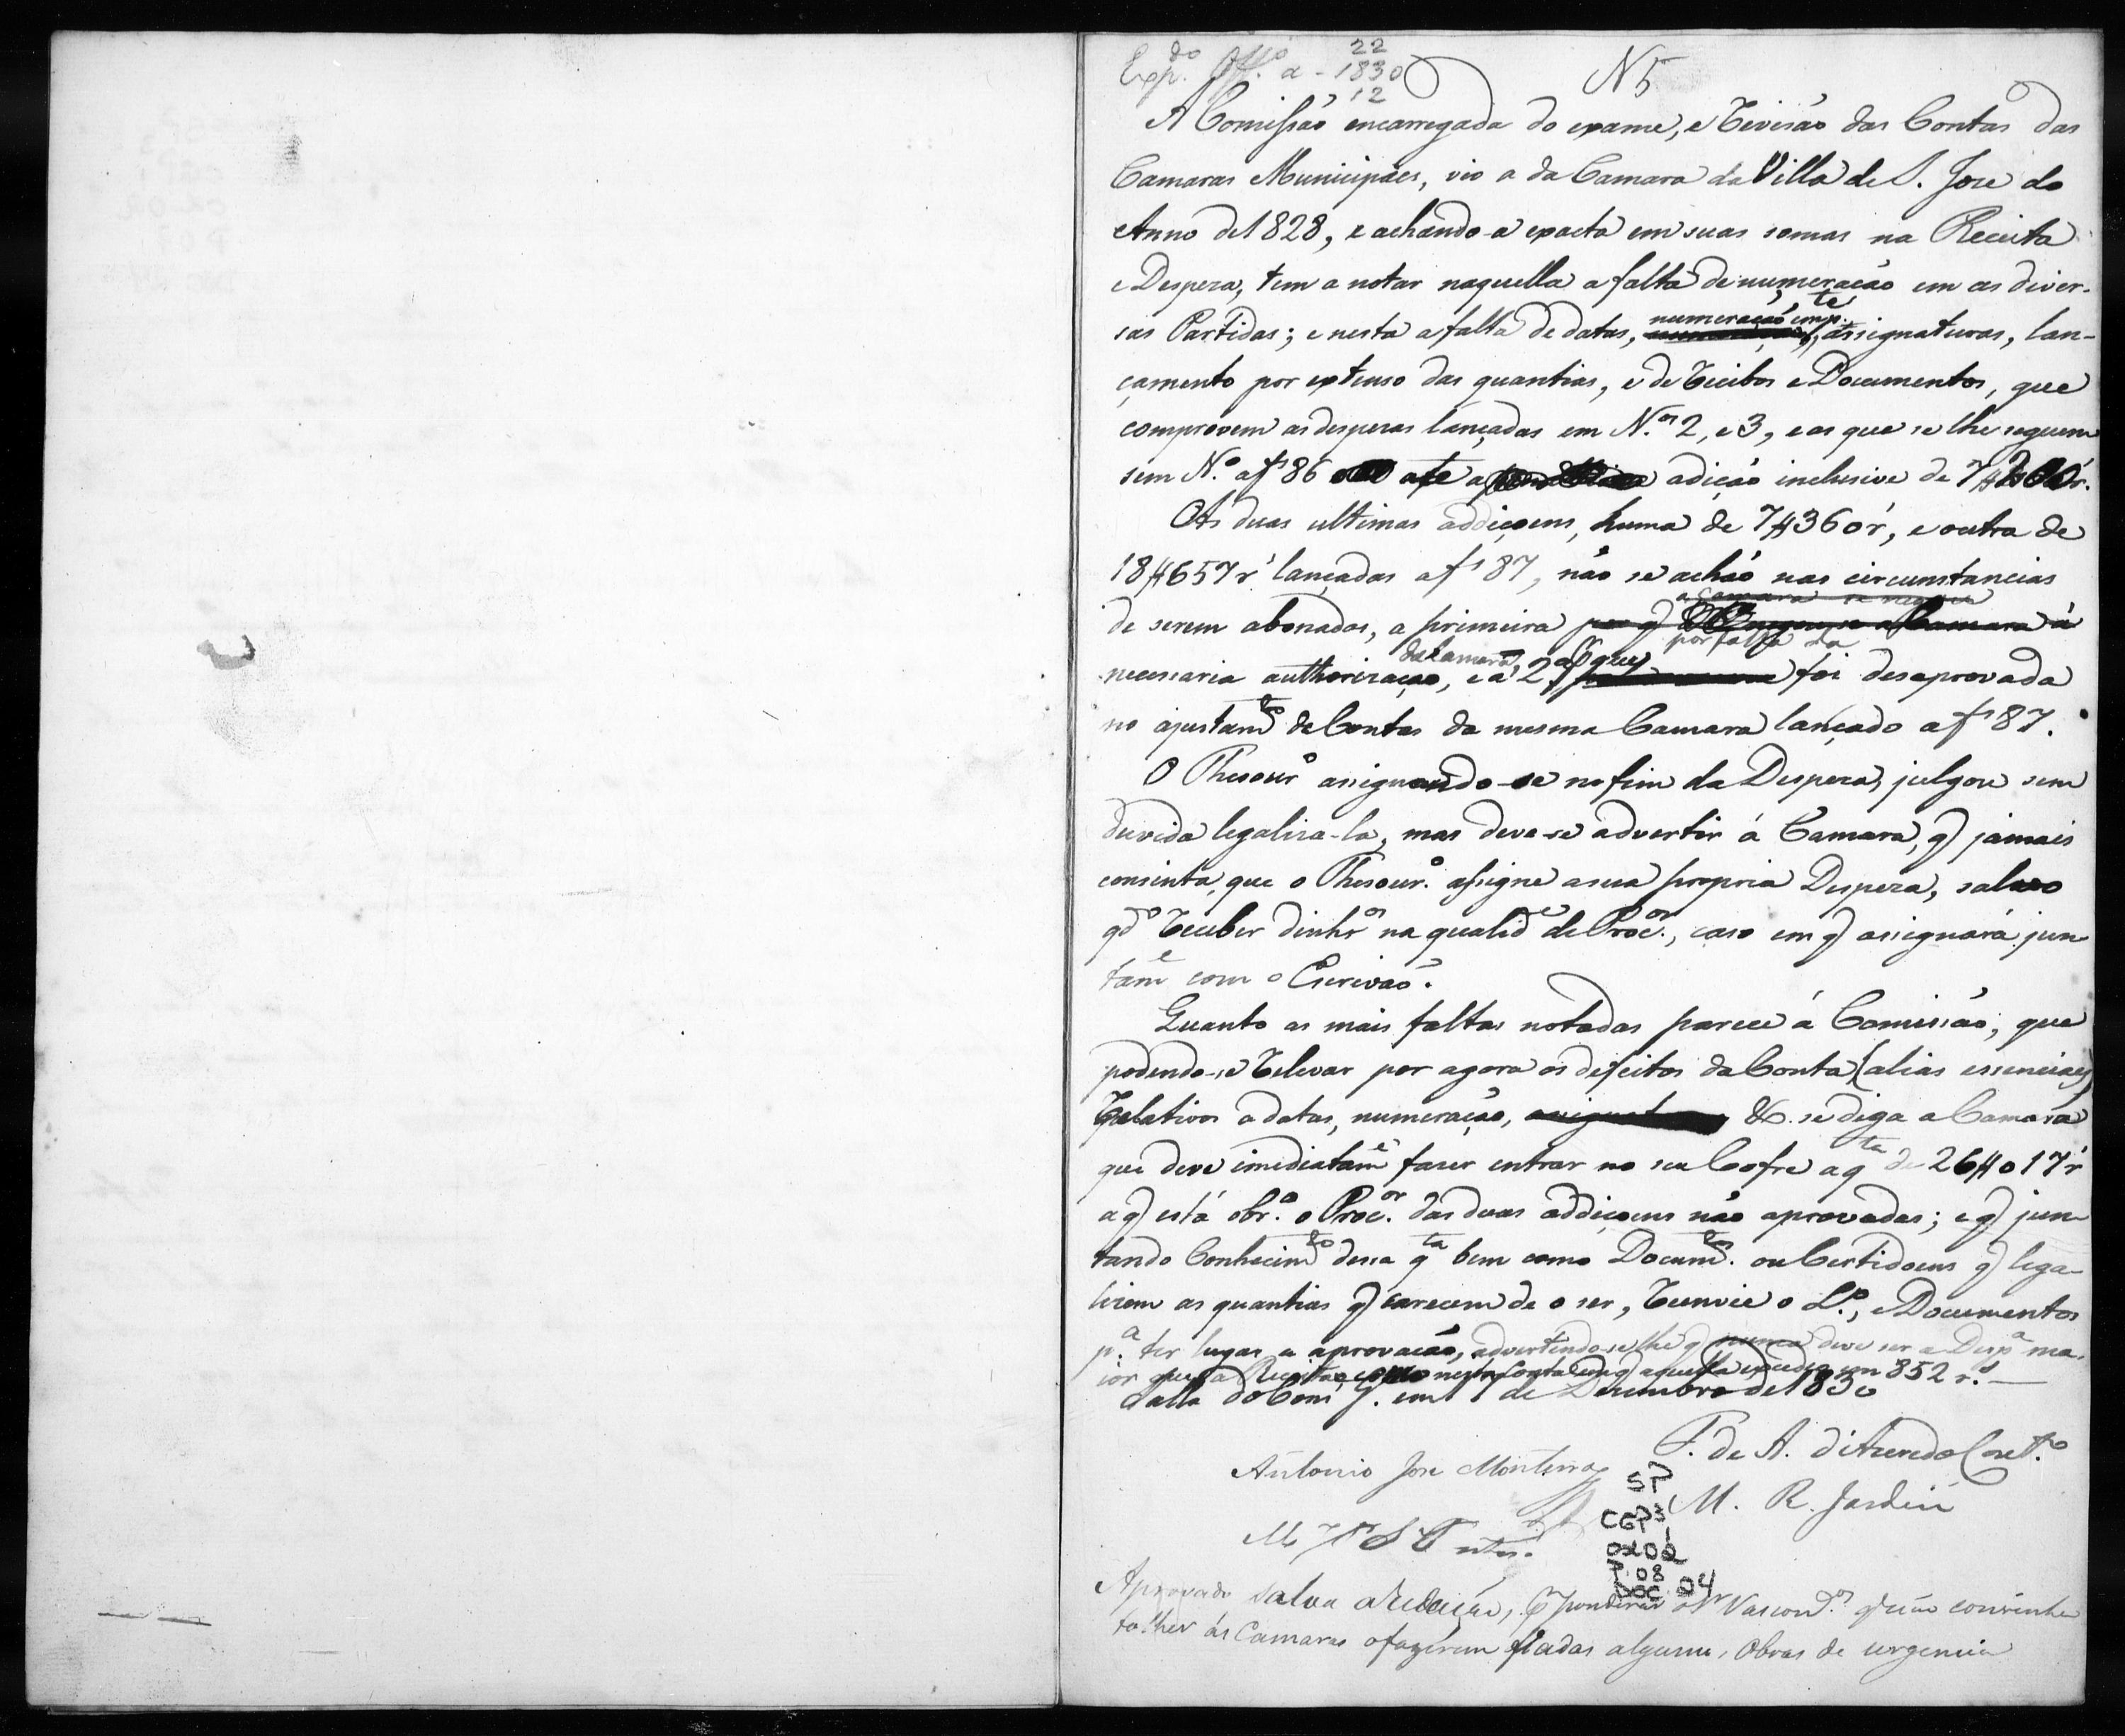 Exp.do Off.o a - 22
1830
12
N 5
A Comissaõ encarregada do exame, e Revisaõ das Contas das
Camaras Municipaes, vio a da Camara da Villa de S. Jose do
Anno de 1828, e achando-a exacta em suas somas na Receita
e Despeza, tem a notar naquella a falta de numeraçaõ em as diver-
sas Partidas; e nesta a falta de datas, numeraçaõ em p.te, assignaturas, lan-
çamento por extenso das quantias, e de Recibos e Documentos, que
comprovem as despezas lançadas em N.os 2, e 3, e as que se lhe seguem
sem N.o a fs 86 até a adiçaõ inclusive de
As duas ultimas addiçoens, huma de 7#360 r', e outra de
18#657 r' lançadas a fs 87, naõ se achaõ nas circunstancias
de serem abonadas, a primeira por falta da
necessaria authorizaçaõ da Camara, e a 2.a q foi desaprovada
no ajustam.to de Contas da mesma Camara lançado a fs 87.
O Thesour.o assignando-se no fim da Despeza, julgou sem
duvida legaliza-la, mas deve-se advertir á Camara, q jamais
consinta, que o Thesour.o assigne a sua propria Despeza, salvo
qd.o Receber dinhr.o na qualid.e de Proc.or, caso em q assignará jun-
tam.e com o Escrivaõ.
Quanto as mais faltas notadas parece á Comissaõ, que
podendo-se Relevar por agora os defeitos da Conta (alias essenciaes)
Relativos a datas, numeraçaõ, &. se diga a Camara
que deve imediatam.e fazer entrar no seu Cofre a q.ta de 26#017 r'
a q está obr.o o Proc.or das duas addiçoens naõ aprovadas; e q jun-
tando Conhecim.to dessa q.ta bem como Docum.tos ou Certidoens q lega-
lizem as quantias q carecem de o ser, Reenvie o L.o, e Documentos
p.a ter lugar a aprovaçaõ, advertindo-se lhe q nunca deve ser a Desp.a ma-
ior que a Receita como nesta Conta em q aquella excedeo em 852 r.s
Salla do Con G. em 1 de Dezembro de 1830
F. de A. d'Azeredo Cout.o
Antonio Jose Monteiro
M. R. Jardim
SP
CGP3
CX02
P.08
DOC. 04
Aprovado salva a Redaçaõ, ponderar o Sr Vascon.os q naõ convinha
tolher ás Camaras o fazerem fiadas algumas Obras de urgencia